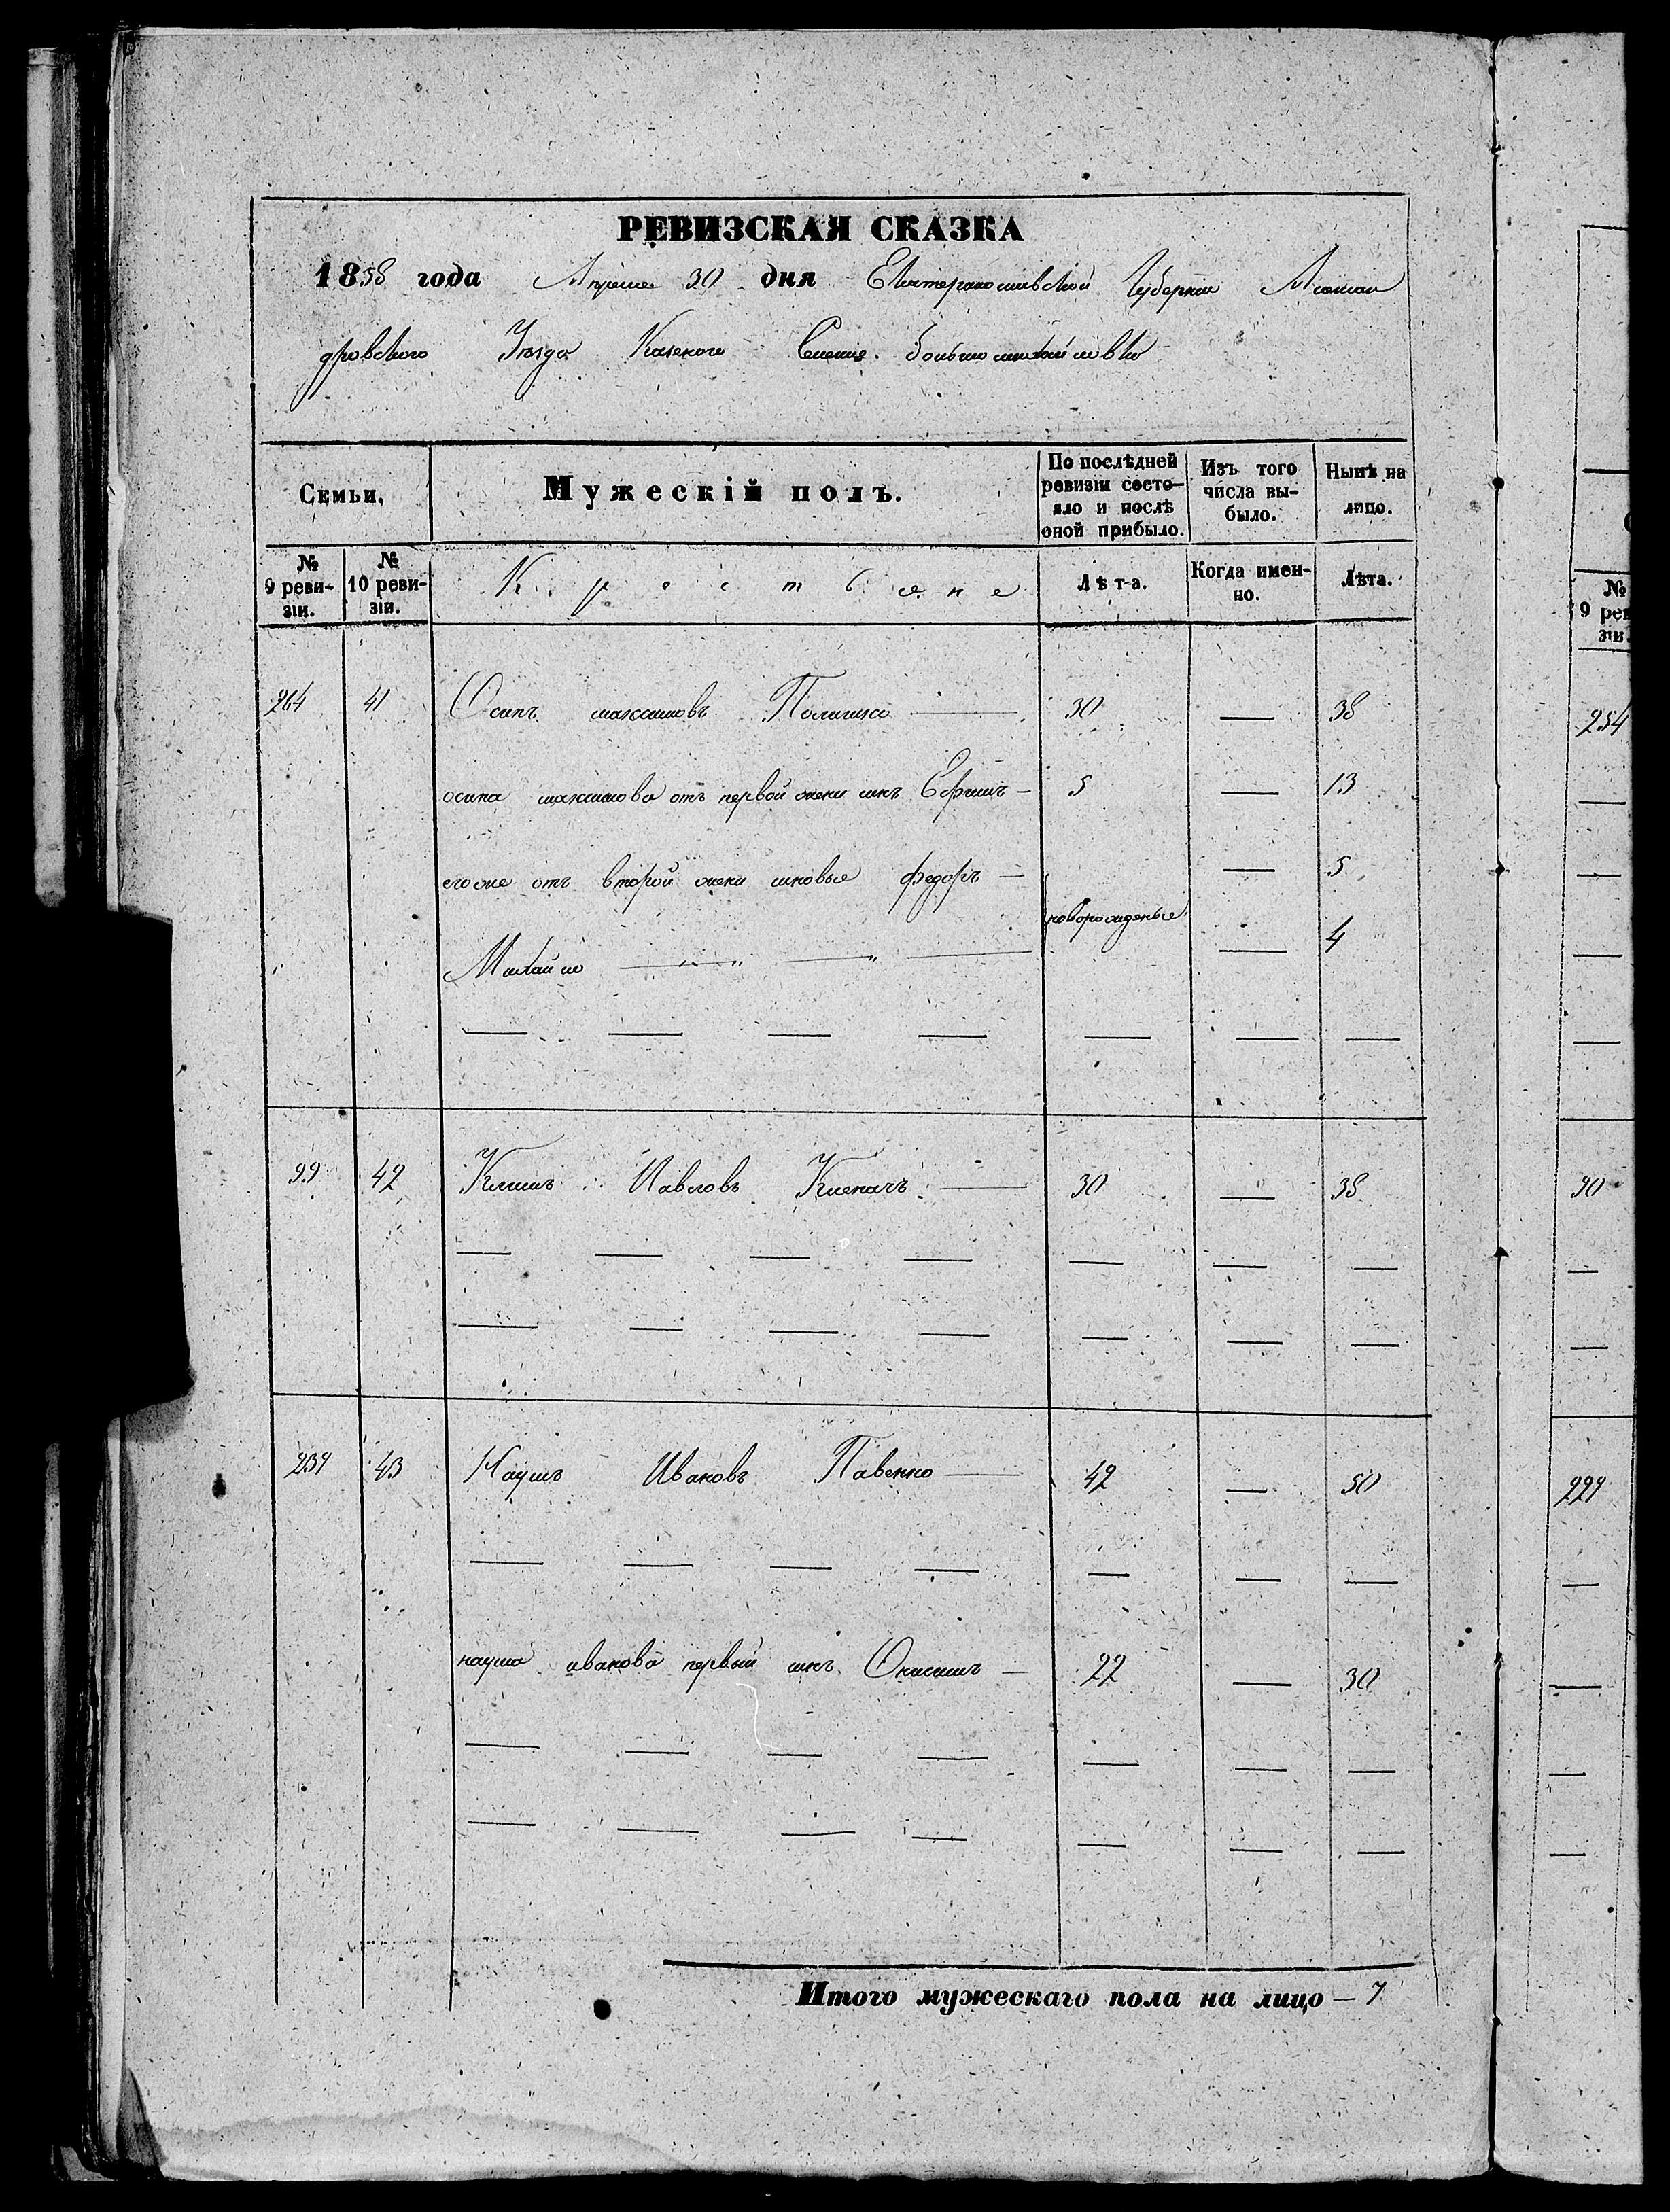 РЕВИЗСКАЯ СКАЗКА
1858 года Апреля 30 дня Екатеринославской Губернии Александ
дровского Уезда Казеного Селения Большомихайловки
Семьи,
Мужескій полъ.
По послѣдней ревизіи состояло и послѣ оной прибыло.
Изъ того числа выбыло.
Нынѣ на лицо.
№ 9 ревизіи.
№ 10 ревизіи.
Крестьяне
Лѣта.
Когда именно.
Лѣта.
264 41 Осипъ максимовъ 30 — 38
осипа максимова отъ первой жени синъ Ефимъ — 5 — 13
его же отъ второй жени синовье федоръ — новорожденые — 5
Михайло — „ — „ — — 4
99 42 Климъ Павловъ Клепачъ — 30 — 38
239 43 Наумъ Ивановъ Павенко — 42 — 50
наума иванова первый синъ Онисимъ — 22 — 30
Итого мужескаго пола на лицо — 7
№ 9 рев
зіи.
254
90
229